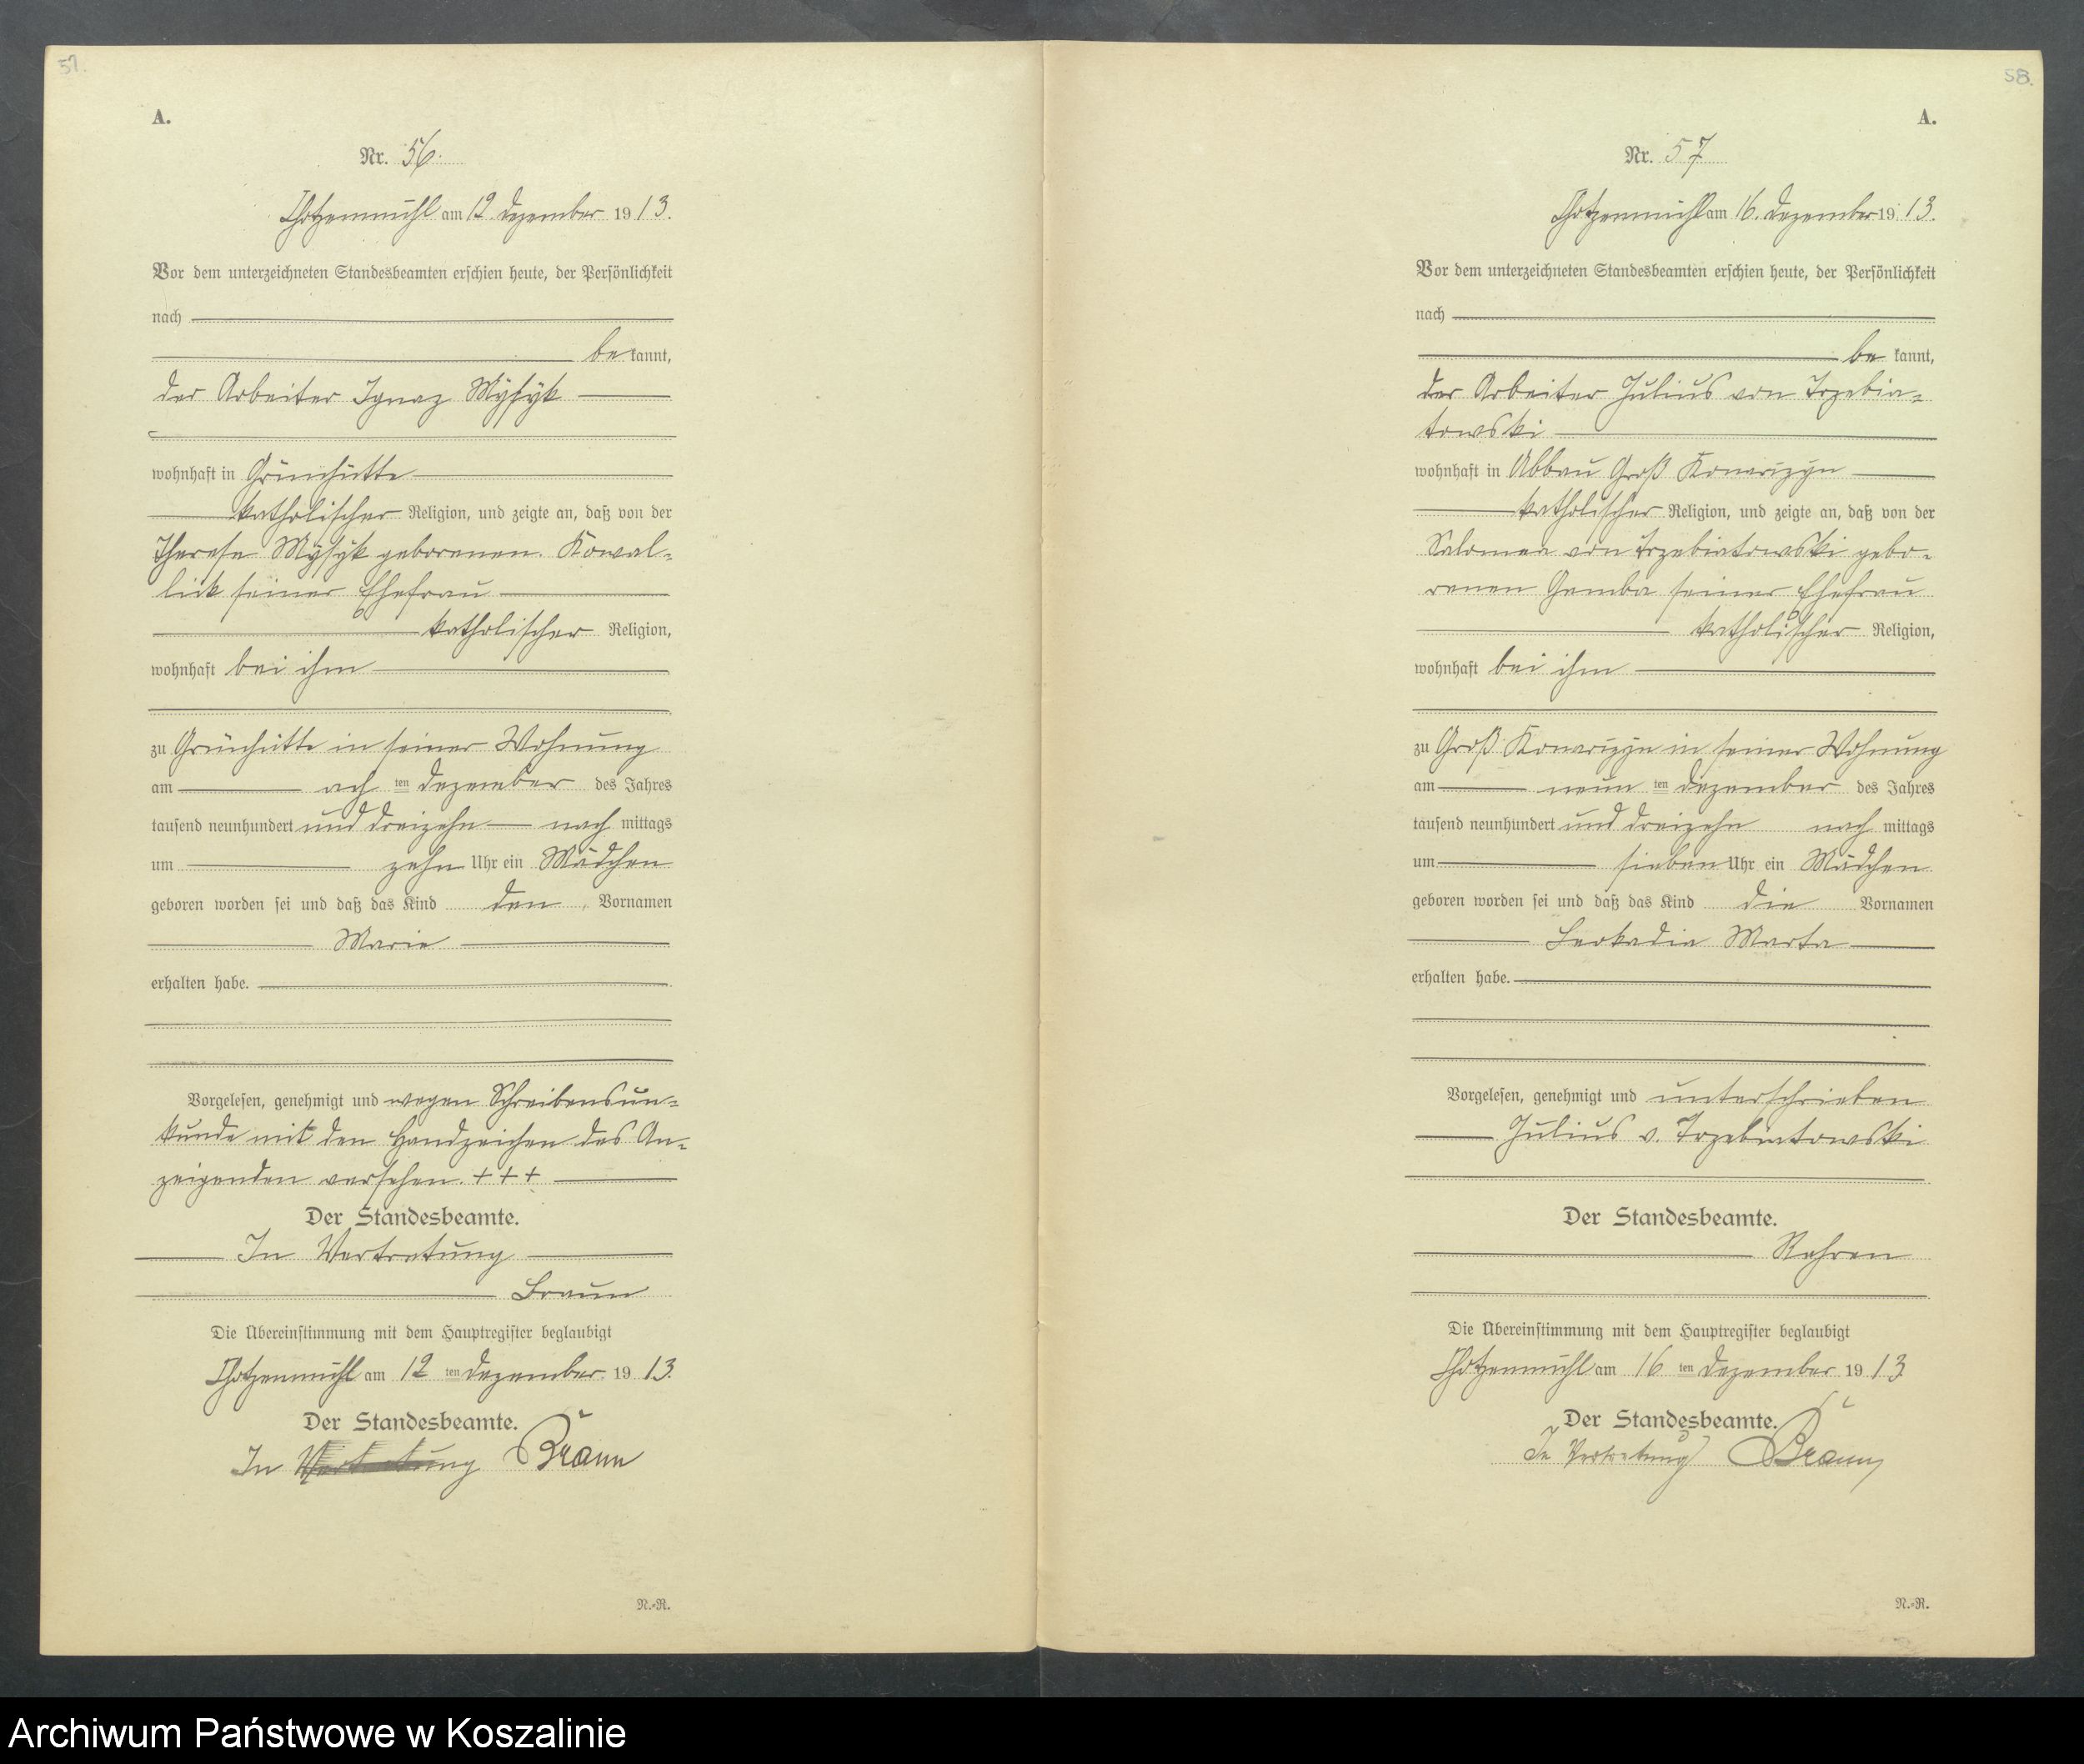 57.
A.
Nr. 56.
Chotzenmühl am 12. Dezember 1913.
Vor dem unterzeichneten Standesbeamten erschien heute, der Persönlichkeit
nach
be kannt,
der Arbeiter Ignaz Mysyk
wohnhaft in Grünhütte
katholischer Religion, und zeigte an, daß von der
Therese Mysyk geborenen Kowal-
lick seiner Ehefrau
katholischer Religion,
wohnhaft bei ihm
zu Grünhütte in seiner Wohnung
am ach ten Dezember des Jahres
tausend neunhundert und dreizehn nach mittags
um zehn Uhr ein Mädchen
geboren worden sei und daß das Kind den Vornamen
Marie
erhalten habe.
Vorgelesen, genehmigt und wegen Schreibensun-
kunde mit den Handzeichen des An-
zeigenden versehen. + + +
Der Standesbeamte.
In Vertretung
Braun
Die Übereinstimmung mit dem Hauptregister beglaubigt
Chotzenmühl am 12 ten Dezember 1913.
Der Standesbeamte.
In Vertretung Braun
N.-R.
58.
A.
Nr. 57
Chotzenmühl am 16. Dezember 1913.
Vor dem unterzeichneten Standesbeamten erschien heute, der Persönlichkeit
nach
be kannt,
der Arbeiter Julius von Trzebia-
towski
wohnhaft in Abbau Groß Konarzyn
katholischer Religion, und zeigte an, daß von der
Salomea von Trzebiatowski gebo-
renen Gemba seiner Ehefrau
katholischer Religion,
wohnhaft bei ihm
zu Groß Konarzyn in seiner Wohnung
am neun ten Dezember des Jahres
tausend neunhundert und dreizehn nach mittags
um sieben Uhr ein Mädchen
geboren worden sei und daß das Kind die Vornamen
Leokadia Marta
erhalten habe.
Vorgelesen, genehmigt und unterschrieben
Julius v. Trzebiatowski
Der Standesbeamte.
Die Übereinstimmung mit dem Hauptregister beglaubigt
Chotzenmühl am 16 ten Dezember 1913
Der Standesbeamte.
In Vertretung Braun
N.-R.
Archiwum Państwowe w Koszalinie